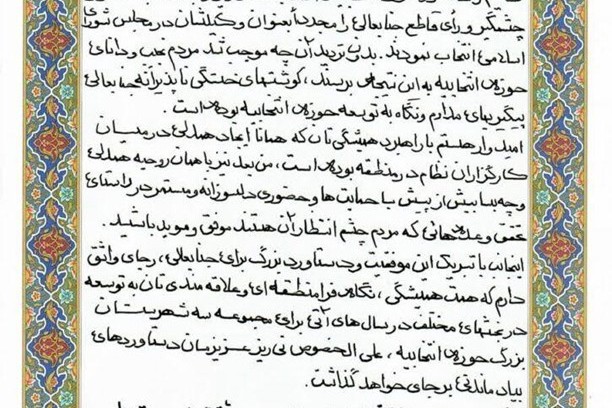 چشمگیر و رای قاطع جنابعالی را مجدداً بعنوان وکیلشان در مجلس شورای
اسلامی انتخاب نمودند. بدون تردید آن چه موجب شد مردم نجیب و دانای
حوزه انتخابیه به این نتیجه برسند، کوششهای خستگی ناپذیرانه جنابعالی
پیگیریهای مداوم ونگاه به توسعه حوزه انتخابیه بوده است.
امیدوار هستم با راهبرد همیشگی تان که همانا ایجاد همدلی درمیان
کارگزاران نظام در منطقه بوده است، من بعد نیز با همان روحیه همدلی
وچه بسا بیش از پیش با حمایت ها و حضوری دلسوزانه و مستمر در راستای
تحقق وعده هائی که مردم چشم انتظار آن هستند موفق و موید باشید.
اینجانب با تبریک این موفقیت و دستاورد بزرگ برای جنابعالی، رجای واثق
دارم که همت همیشگی، نگاه فرا منطقه ای و علاقه مندی تان به توسعه
در بخشهای مختلف در سال های آتی برای مجموعه سه شهرستان
بزرگ حوزه انتخابیه، علی الخصوص نی ریز عزیزمان دستاوردهای
بیاد ماندنی برجای خواهد گذاشت.